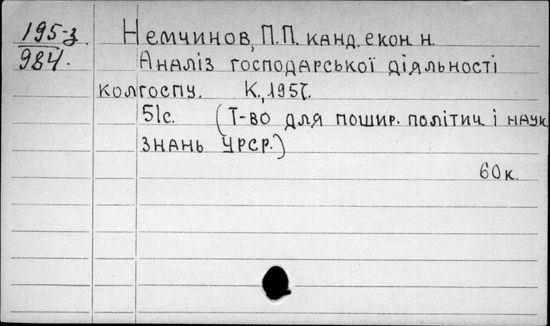 195-з
984.
Немчинов, П.П. канд. екон. н.
Аналіз господарської діяльності
колгоспу. К., 1957.
51с. (Т-во для пошир. політич. і наук.
знань УРСР.)
60к.